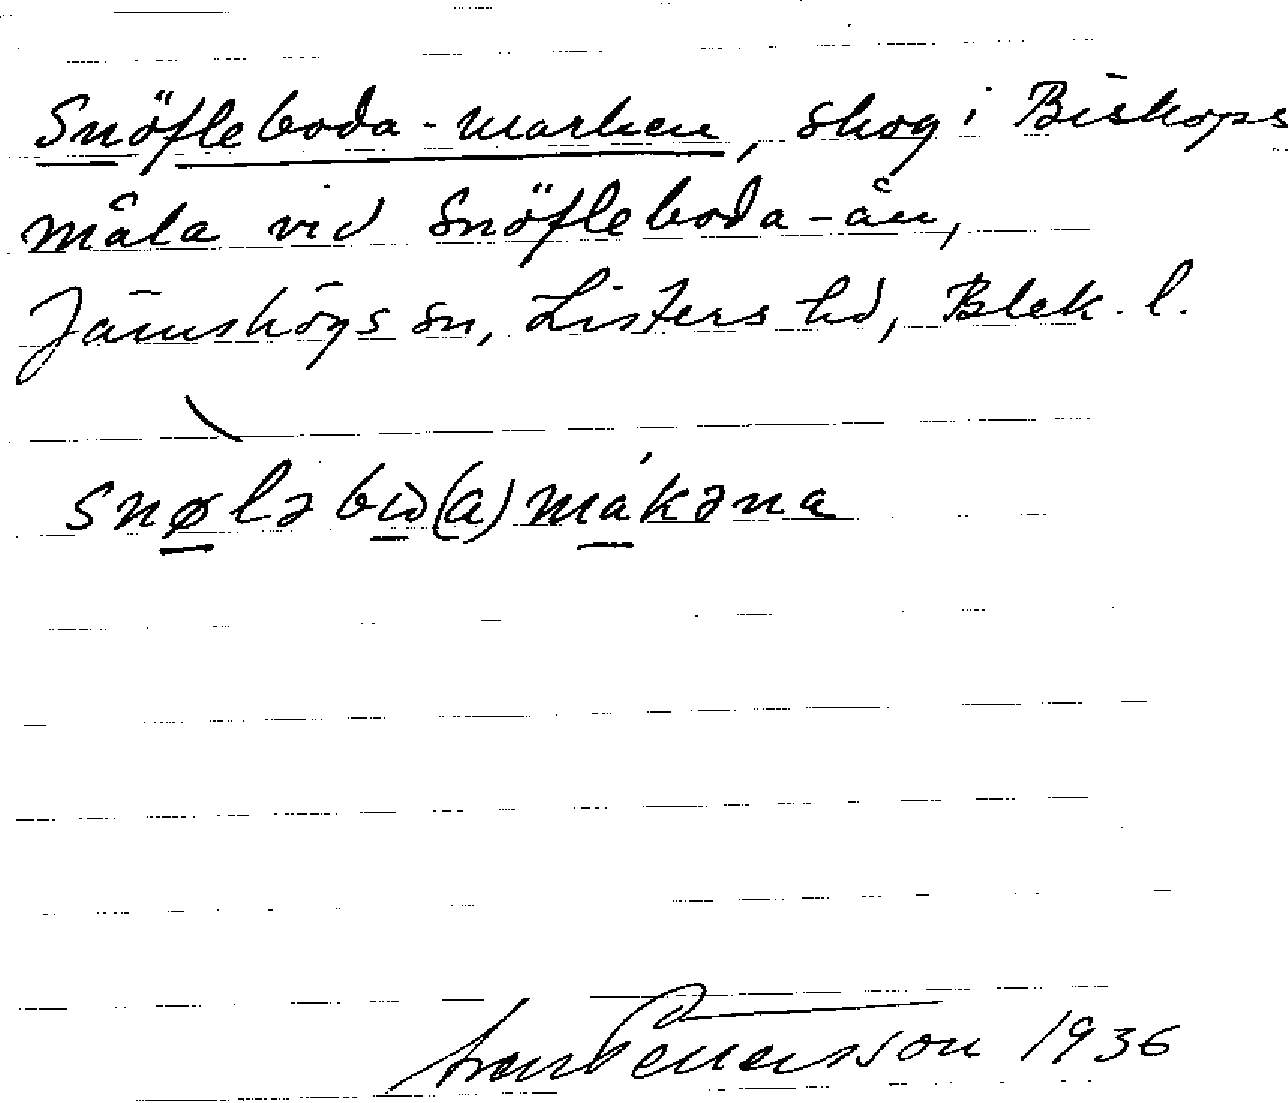 Snöfleboda-marken, skog i Biskops
måla vid Snöfleboda-ån,
Jämshögs sn, Listers hd, Blek. l.
snøləbω(a)mákəna
1936